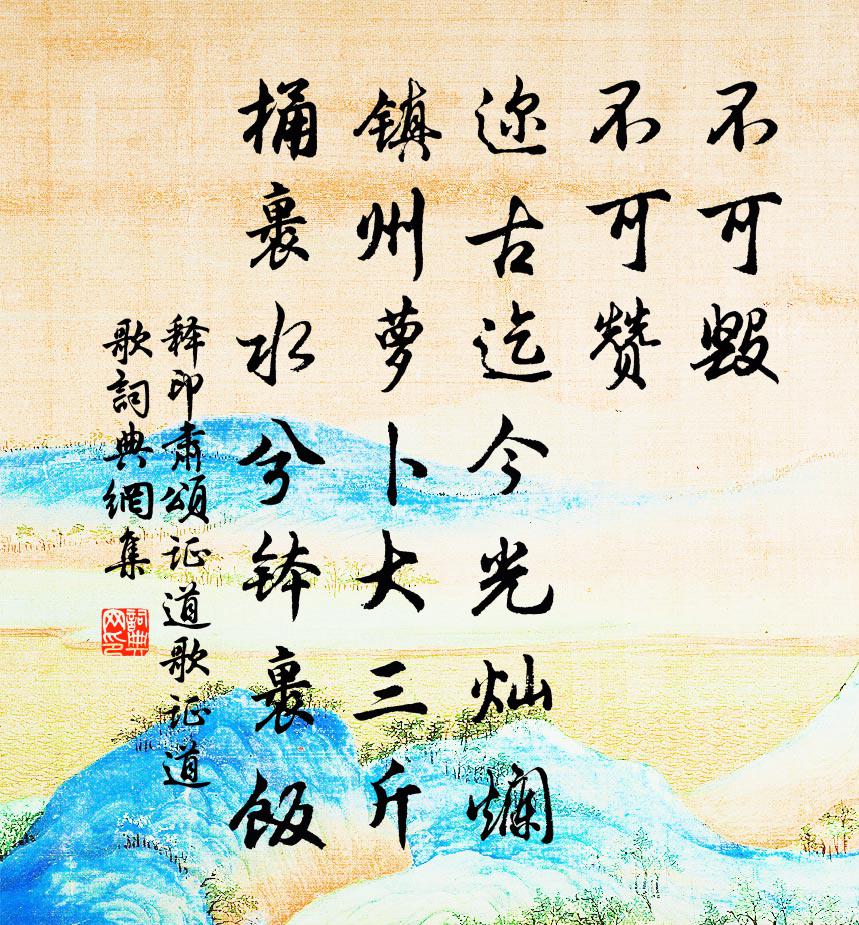 不可毁
不可赞
迩古迄今光灿烂
镇州萝卜大三斤
桶裹水兮钵裹饭
释印肃頌证道歌证道
歌詞典網集
詞典
网印